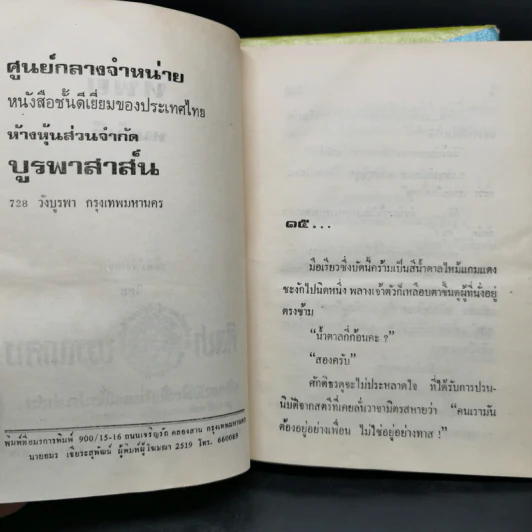 ศูนย์กลางจำหน่าย
หนังสือชั้นดีเยี่ยมของประเทศไทย
ห้างหุ้นส่วนจำกัด
บูรพาสาส์น
728 วังบูรพา กรุงเทพมหานคร
พิมพ์ที่อมรการพิมพ์ 900/15-16 ถนนเจริญรัถ คลองสาน กรุงเทพมหานคร
นายอมร เชียรสุพัฒน์ ผู้พิมพ์ผู้โฆษณา 2519 โทร.
๑๕...
มือเรียวซึ่งบัดนี้คร้ามเป็นสีน้ำตาลไหม้แกมแดง
ชะงักไปนิดหนึ่ง พลางเจ้าตัวก็เหลือบตาขึ้นดูผู้ที่นั่งอยู่
ตรงข้าม
“น้ำตาลกี่ก้อนคะ ?”
“สองครับ”
ศักดิ์ธรดูจะไม่ประหลาดใจ ที่ได้รับการปรน-
นิบัติจากสตรีที่เคยลั่นวาจามิตรสหายว่า “คนเรามัน
ต้องอยู่อย่างเพื่อน ไม่ใช่อยู่อย่างทาส !”